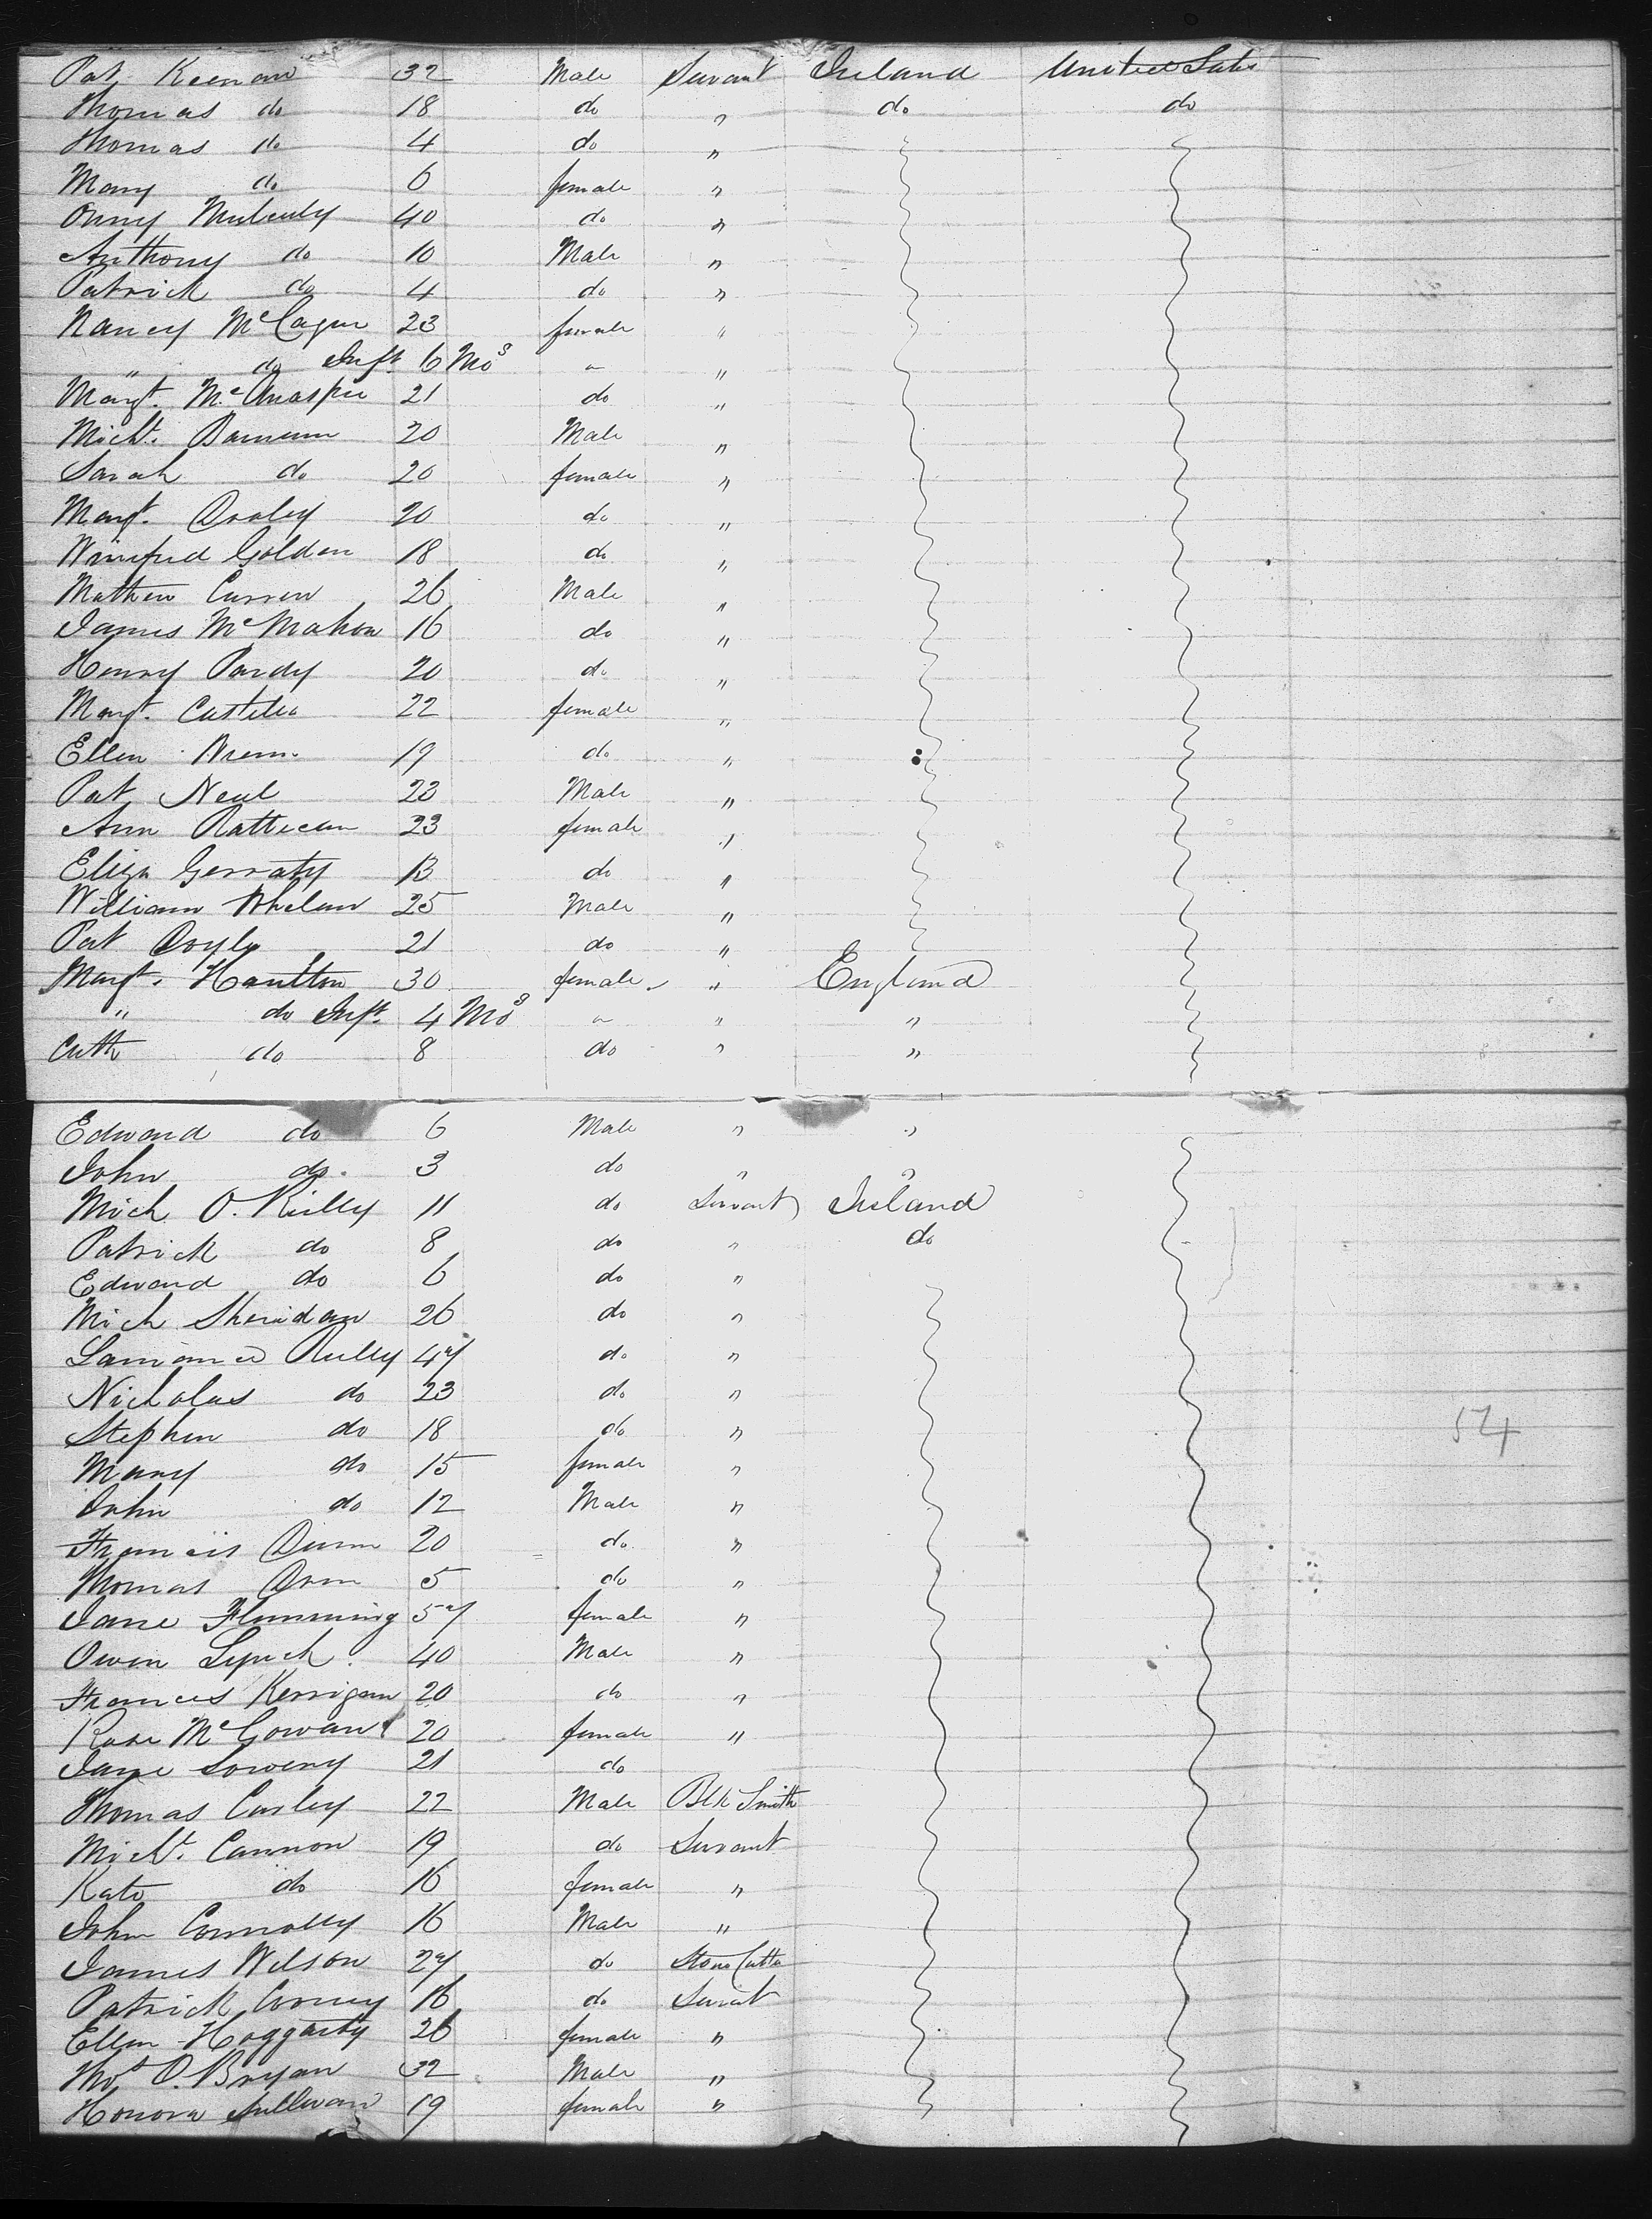 Pat Keenan 32 Male Servant Ireland United States
Thomas do 18 do " do do
Thomas do 4 do "
Mary do 6 female "
Onny Mulculy 40 do "
Anthony do 10 Male "
Patrick do 4 do "
Nancy McCague 23 female "
" do Inft 6 Mos " "
Margt. 21 do "
Michl. 20 Male "
Sarah do 20 female "
Margt. Dooley 20 do "
Winifred Golden 18 do "
Mathew Curren 26 Male "
James McMahon 16 do "
Henry Pardy 20 do "
Margt. Castelio 22 female "
Ellen 19 do "
Pat Neal 23 Male "
Ann Rattican 23 female "
Eliza Gerraty 13 do "
William Whelan 25 Male "
Pat Doyle 21 do "
Margt. Haulton 30 female " England
" do Inft 4 Mos " " "
Cath do 8 do " "
Edward do 6 Male " "
John do. 3 do " "
Mich O. Rielly 11 do Servant Ireland
Patrick do 8 do " do
Edward do 6 do "
Mich Sheridan 26 do "
Larrance Reilly 47 do "
Nicholas do 23 do "
Stephen do 18 do "
Mary do 15 female "
John do 12 Male "
Francis Dunn 20 do "
Thomas 5 do "
Jane Flemming 57 female "
Owen Lynch 40 Male "
Frances Kerrigan 20 do "
Rose McGowan 20 female "
Jane Soweny 21 do
Thomas Curley 22 Male Blk Smith
Michl. Cannon 19 do Servant
Kate do 16 female "
John Connolly 16 Male "
James Wilson 27 do Stone Cutter
Patrick 16 do Servt
Ellen Hoggarty 26 female "
Thos O. Bryan 32 Male "
Honora Sullivan 19 female "
574